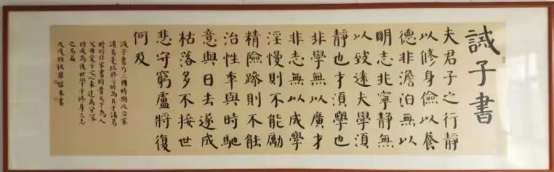 誡子書
夫君子之行靜
以修身儉以養
德非澹泊無以
明志非寧靜無
以致遠夫學須
靜也才須學也
非學無以廣才
非志無以成學
淫慢則不能勵
精險躁則不能
治性年與時馳
意與日去遂成
枯落多不接世
悲守窮廬將復
何及
誡子書乃三國時期政治家